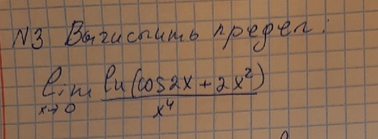 N3 Вычислить предел:
lim ln(cos2x+2x²)
x→0 x⁴